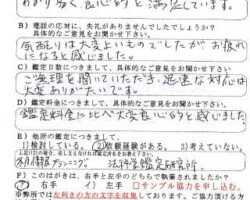 わかり易く、良心的と満足しています。
B）電話の応対に、失礼がありませんでしたでしょうか？
具体的なご意見をお聞かせ下さい。
気配りは大変よいものでしたがお疲れ
になると感じました。
C）鑑定につきまして、具体的なご意見をお聞かせ下さい。
ご無理を聞いていただき、迅速な対応は
大変ありがたいです。
D）鑑定料金につきまして、具体的なご意見をお聞かせ下さい。
鑑定料金に比べ大変良心的と感じました。
E）他所の鑑定につきまして、
1）検討している。 2）依頼経験がある。 3）考えていない。
法科学鑑定研究所
F）このはがきは、右手と左手のどちらで執筆されましたか？
ア 右手 イ）左手 □サンプル協力を申し込む。
※弊所では左利きの方の文字を収集しております。ご協力頂ける方